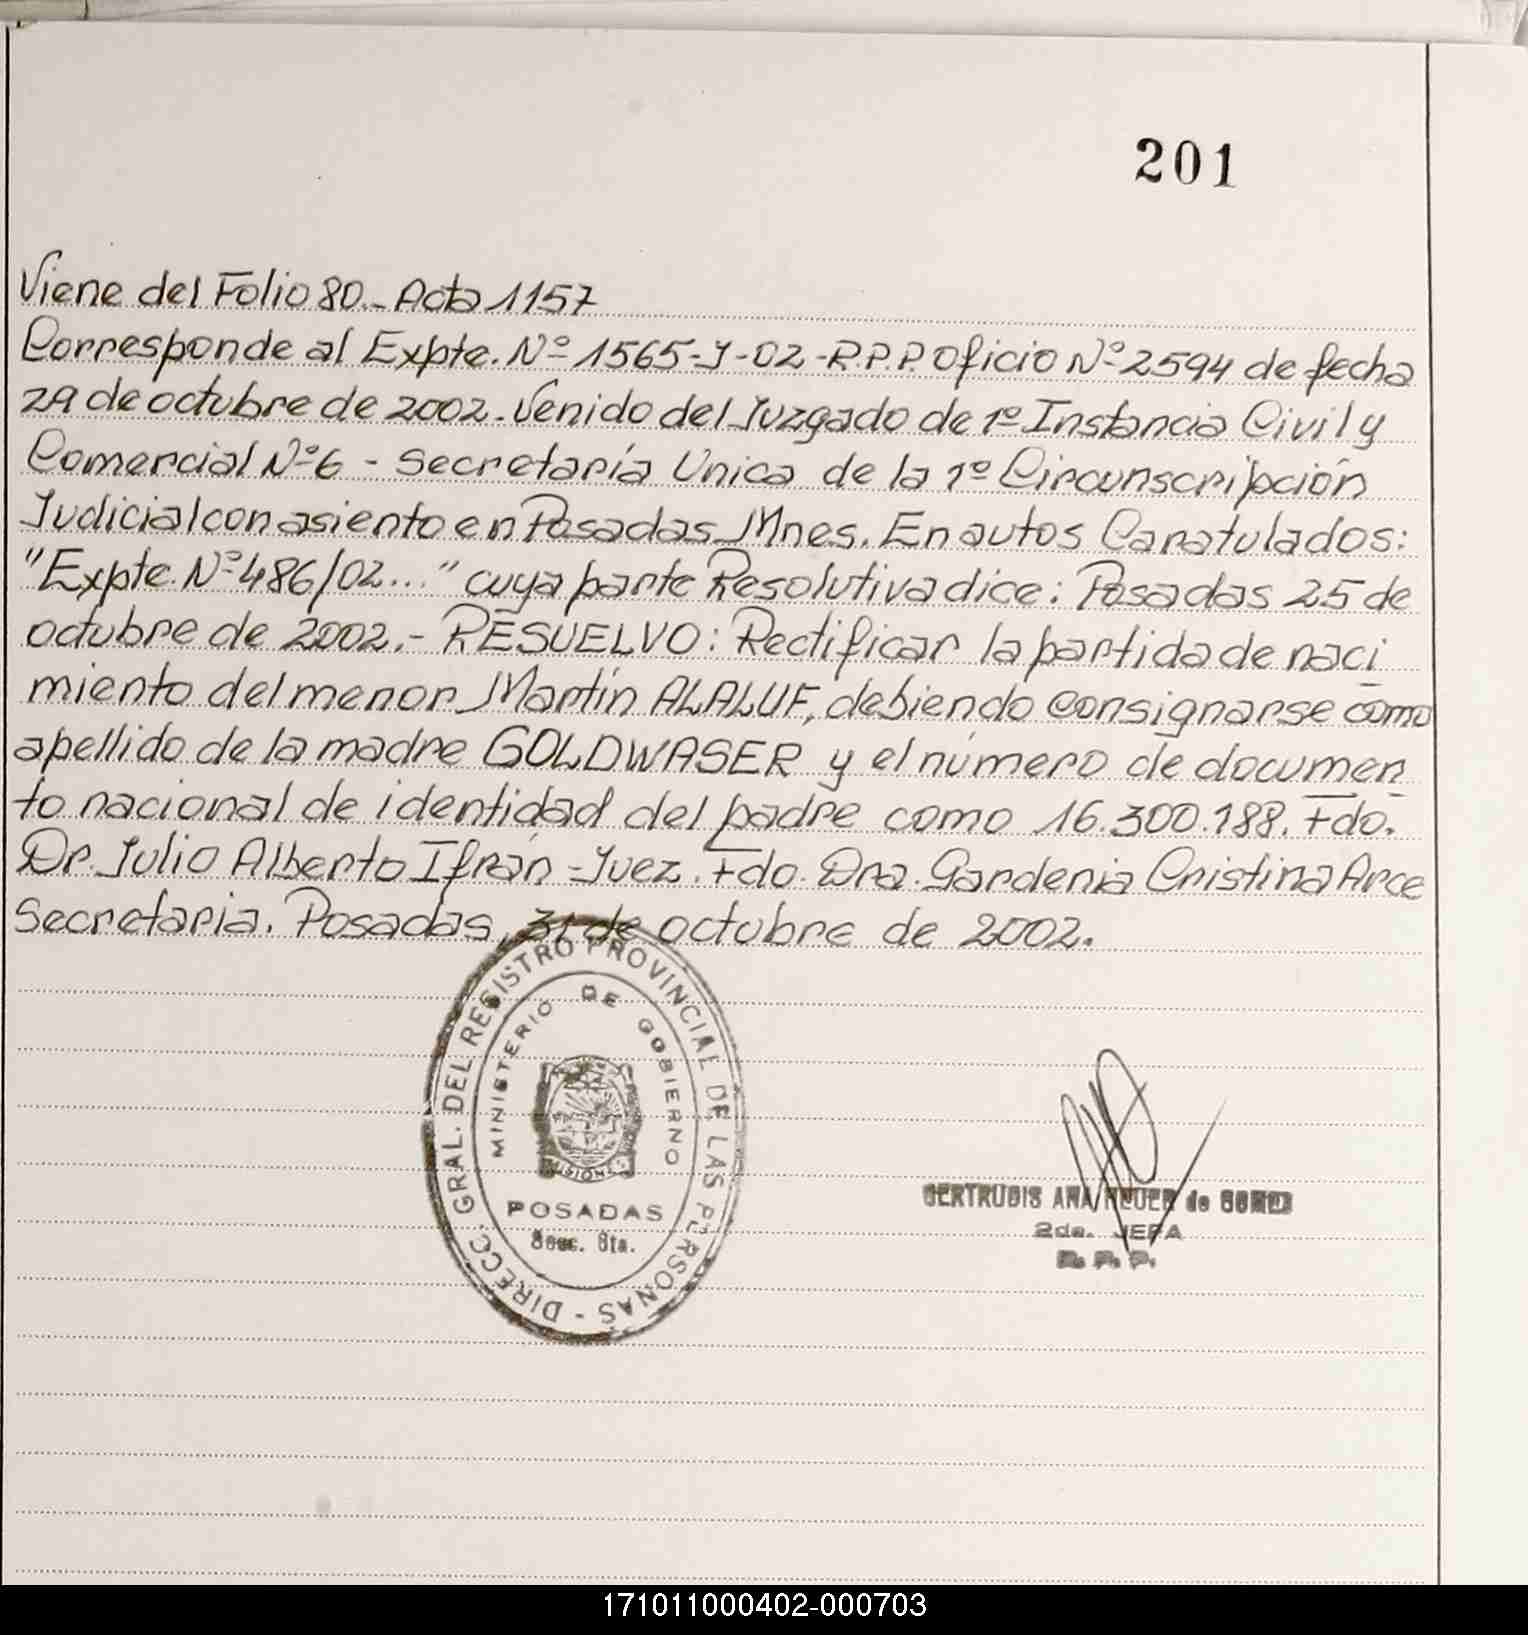 201
Viene del Folio 80.- Acta 1157
Corresponde al Expte. Nº 1565-J-02-R.P.P. Oficio Nº 2594 de fecha
29 de octubre de 2002. Venido del Juzgado de 1º Instancia Civil y
Comercial Nº 6 - Secretaría Unica de la 1º Circunscripción
Judicial con asiento en Posadas Mnes. En autos Caratulados:
"Expte. Nº 486/02..." cuya parte Resolutiva dice: Posadas 25 de
octubre de 2002.- RESUELVO: Rectificar la partida de naci
miento del menor Martín ALALUF, debiendo consignarse como
apellido de la madre GOLDWASER y el número de documen
to nacional de identidad del padre como 16.300.188. Fdo.
Dr. Julio Alberto Ifrán - Juez. Fdo. Dra. Gardenia Cristina Arce
Secretaria. Posadas, 31 de octubre de 2002.
DIRECC. GRAL. DEL REGISTRO PROVINCIAL DE LAS PERSONAS -
MINISTERIO DE GOBIERNO
MISIONES
POSADAS
Secc. 8ta.
GERTRUDIS ANA de
2da. JEFA
R. P. P.
171011000402-000703